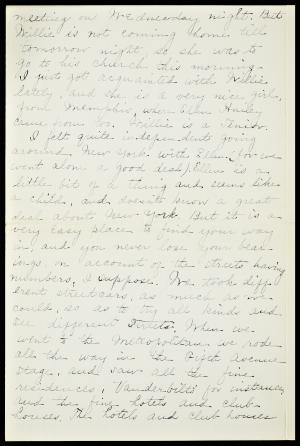 meeting on Wednesday night. But
Willie is not coming home till
tomorrow night, so she was to
go to his church this morning.
I just got acquainted with Willie
lately and she is a very nice girl,
from Memphis, where Ellen
came from too. Willie is a Junior.
I felt quite independent going
around New York with Ellen (for we
went alone a good deal). Ellen is a
little bit of a thing and seems like
a child, and doesn't know a great
deal about New York. But it is a
very easy place to find your way
in and you never lose your bear-
ings on account of the streets having
numbers, I suppose. We took diff-
erent streetcars, as much as we
could, so as to try all kinds and
see different streets. When we
went to the Metropolitan we rode
all the way in the Fifth Avenue
stage, and saw all the fine
residences, Vanderbilts' for instance,
and the fine hotels and club-
houses. The hotels and club houses